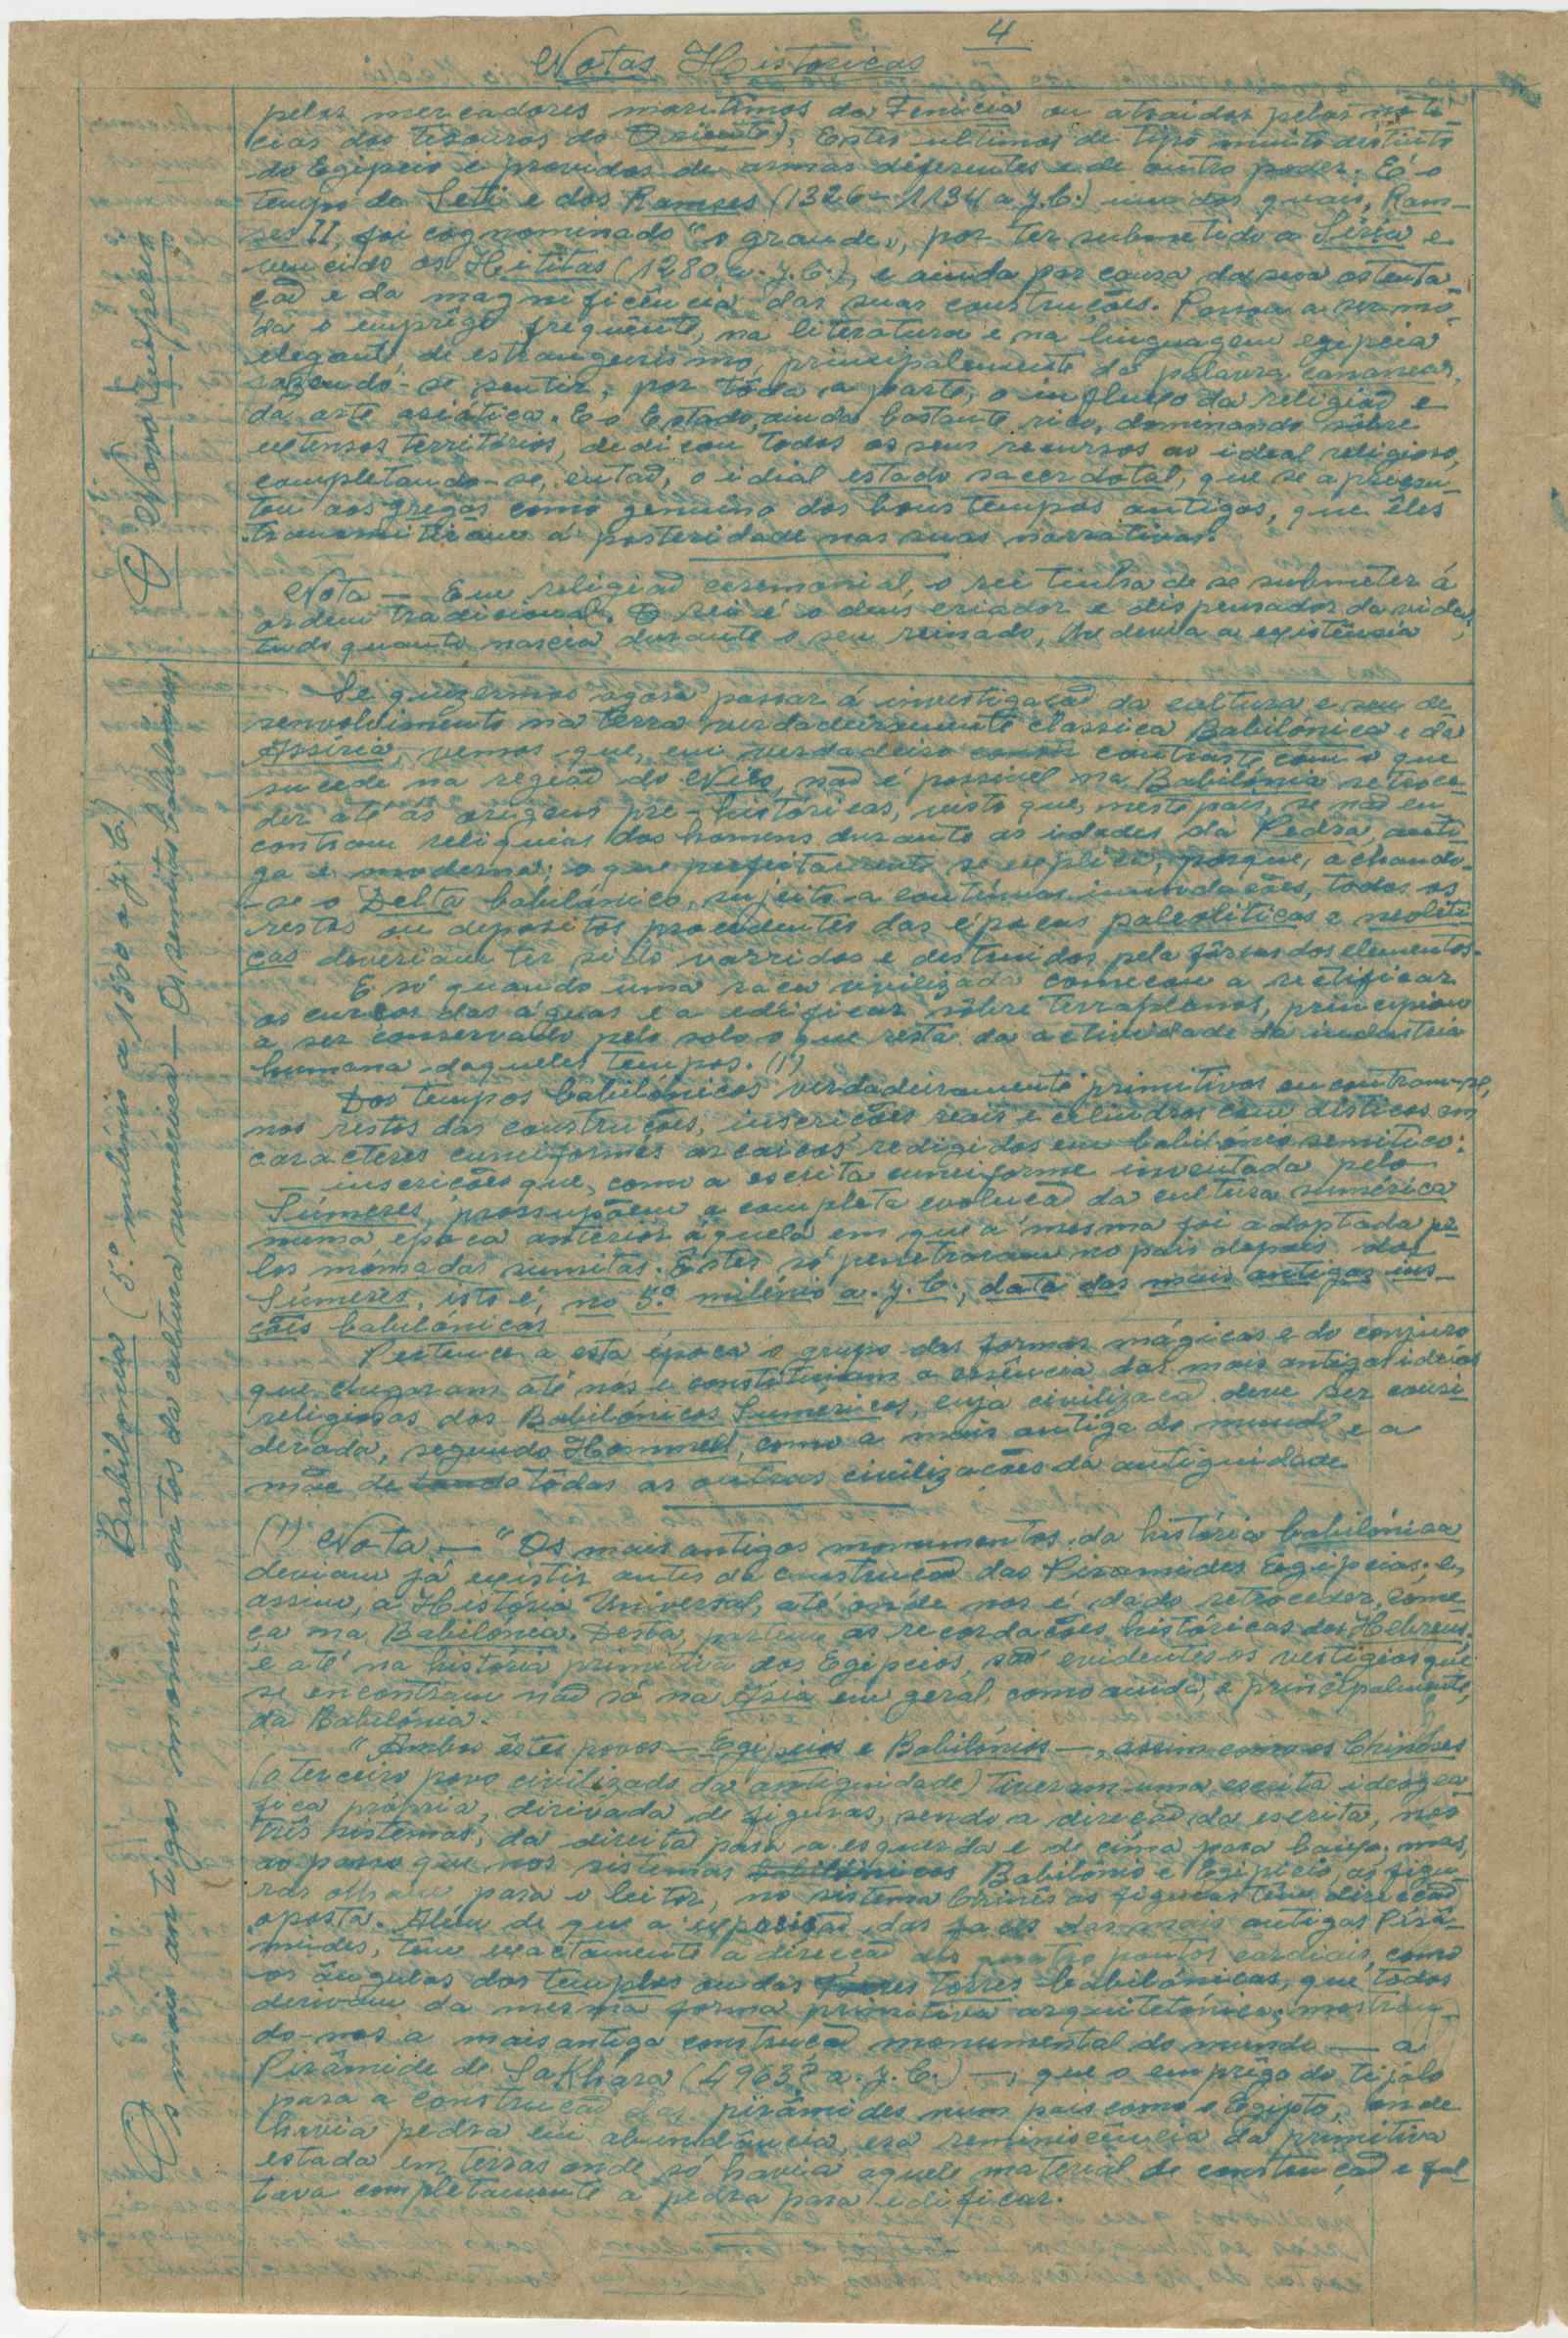 4
Notas Historicas
O Novo Império
pelos mercadores maritimos da Fenicia ou atraidos pelas noti-
cias dos tesouros do Oriente), Estes ultimos de tipo muito destinto
do Egipcio e providos de armas diferentes e de outro poder. É o
tempo de Seti e dos Ramses (1326-1134 a J.C.) um dos quais, Ram-
ses II, foi cognominado "o grande", por ter submetido a Siria e
vencido os Hetitas (1280 a. J.C.), e ainda por causa da sua ostenta-
ção e da magnificência das suas construções. Passa a ser mo-
da o emprêgo freqüente, na literatura e na linguagem egipcia
elegante, de estrangeirismo, principalmente de palavra cananeas,
fazendo-se sentir, por tôda a parte, o influxo da religião e
da arte asiática. E o Estado, ainda bastante rico, dominando sôbre
extensos territórios, dedicou todos os seus recursos ao ideal religioso,
completando-se, então, o idial estado sacerdotal, que se apresen-
tou aos gregos como genuino dos bons tempos antigos, que êles
transmitiram á posteridade nas suas narrativas.
Nota — Em religião ceremonial, o rei tinha de se submeter á
ordem tradicional. O rei é o deus criador e dispensador da vida;
tudo quanto nascia durante o seu reinado, lhe devia a existência
Babilónia (5.º milénio a 1500 a J.C.)
Os mais antigos monumentos da cultura sumérica — Os semitas babilónicos
Se quizermos agora passar á investigação da cultura e seu de-
senvolvimento na terra verdadeiramente classica Babilónica e da
Assiria, vemos que, em verdadeiro contraste com o que
sucede na região do Nilo, não é possivel na Babilónia retroce-
der até ás origens pre-históricas, visto que, neste pais, se não en-
contram reliquias dos homens durante as idades da Pedra, anti-
ga e moderna; o que perfeitamente se explica, porque, achando-
-se o Delta babilónico, sujeito a contínuas inundações, todos os
restos ou depositos procedentes das épocas paleoliticas e neoliti-
cas deveriam ter sido varridos e destruidos pela fôrça dos elementos.
E só quando uma raça civilizada começou a rectificar
os cursos das águas e a edificar sôbre terraplanos, principiou
a ser conservado pelo solo o que resta da actividade da industria
humana daqueles tempos. (1)
Dos tempos babilónicos verdadeiramente primitivos encontram-se,
nos restos das construções, inscrições reais e cilindros com disticos em
caracteres cuneiformes arcaicos redigidos em babilónio semitico:
— inscrições que, como a escrita cuneiforme inventada pelo
Súmeres, pressupõem a completa evolução da cultura sumérica
numa época anterior áquela em que a mesma foi adoptada pe-
los nómadas semitas. Êstes só penetraram no pais depois dos
Súmeres, isto é, no 5.º milénio a. J. C., data das mais antigas ins-
ções babilónicas
Pertence a esta época o grupo das formas mágicas e do conjuro
que chegaram até nós e constituiam a essência das mais antigas ideias
religiosas dos Babilónicos Suméricos, cuja civilização deve ser consi-
derada, segundo Hommell, como a mais antiga do mundo, e a
mãe de tôdas as outras civilizações da antiguidade
(1) Nota — "Os mais antigos monumentos da história babilónica
deviam já existir antes da construção das Piramides Egipcias; e,
assim, a História Universal, até onde nos é dado retroceder, come-
ça na Babilónia. Desta, partem as recordações históricas dos Hebreus.
e até na história primitiva dos Egipcios, são evidentes os vestigios que
se encontram não só na Ásia em geral, como ainda, e principalmente,
da Babilónia.
"Ambos êstes povos — Egipcios e Babilónios —, assim como os Chinêses
(o terceiro povo civilizado da antiguidade) tiveram uma escrita ideográ-
fica própria, dirivada de figuras, sendo a direcção da escrita, nos
três sistemas, da direita para a esquerda e de cima para baixo. mas,
ao passo que nos sistemas babilónicos Babilónio e Egipcio, as figu-
ras olham para o leitor, no sistema Chinês as figuras têm direcção
oposta. Além de que a exposição das faces das mais antigas Pirâ-
mides, têm exactamente a direcção dos quatro pontos cardiais, como
os ângulos dos templos ou das torres babilónicas, que todos
derivam da mesma forma primitiva arquitetónica; mostran-
do-nos a mais antiga construção monumental do mundo — a
Pirâmide de Sakhára (4963? a. J. C.) —, que o emprêgo do tijolo
para a construção das pirâmides num pais como o Egipto, onde
havia pedra em abundância, era reminiscência da primitiva
estada em terras onde só havia aquele material de construção e fal-
tava completamente a pedra para edificar.